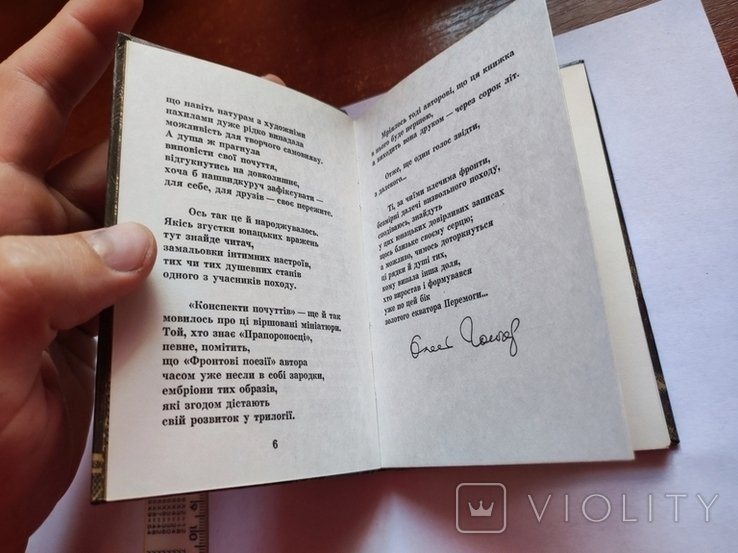 що навіть натурам з художніми
нахилами дуже рідко випадала
можливість для творчого самовияву.
А душа ж прагнула
виповісти свої почуття,
відгукнутись на довколишнє,
хоча б нашвидкуруч зафіксувати —
для себе, для друзів — своє пережите.
Ось так це й народжувалось.
Якісь згустки юнацьких вражень
тут знайде читач,
замальовки інтимних настроїв,
тих чи тих душевних станів
одного з учасників походу.
«Конспекти почуттів» — ще й так
мовилось про ці віршовані мініатюри.
Той, хто знає «Прапороносці»,
певне, помітить,
що «Фронтові поезії» автора
часом уже несли в собі зародки,
ембріони тих образів,
які згодом дістають
свій розвиток у трилогії.
6
Мріялось тоді авторові, що ця книжка
в нього буде першою,
а виходить вона друком — через сорок літ.
Отже, ще один голос звідти,
з далекого...
Ті, за чиїми плечима фронти,
безмірні далечі визвольного походу,
сподіваюсь, знайдуть
у цих юнацьких довірливих записах
щось близьке своєму серцю;
а можливо, чимось доторкнуться
ці рядки й душі тих,
кому випала інша доля,
хто виростав і формувався
уже по цей бік
золотого екватора Перемоги...
Олесь Гончар
VIOLITY